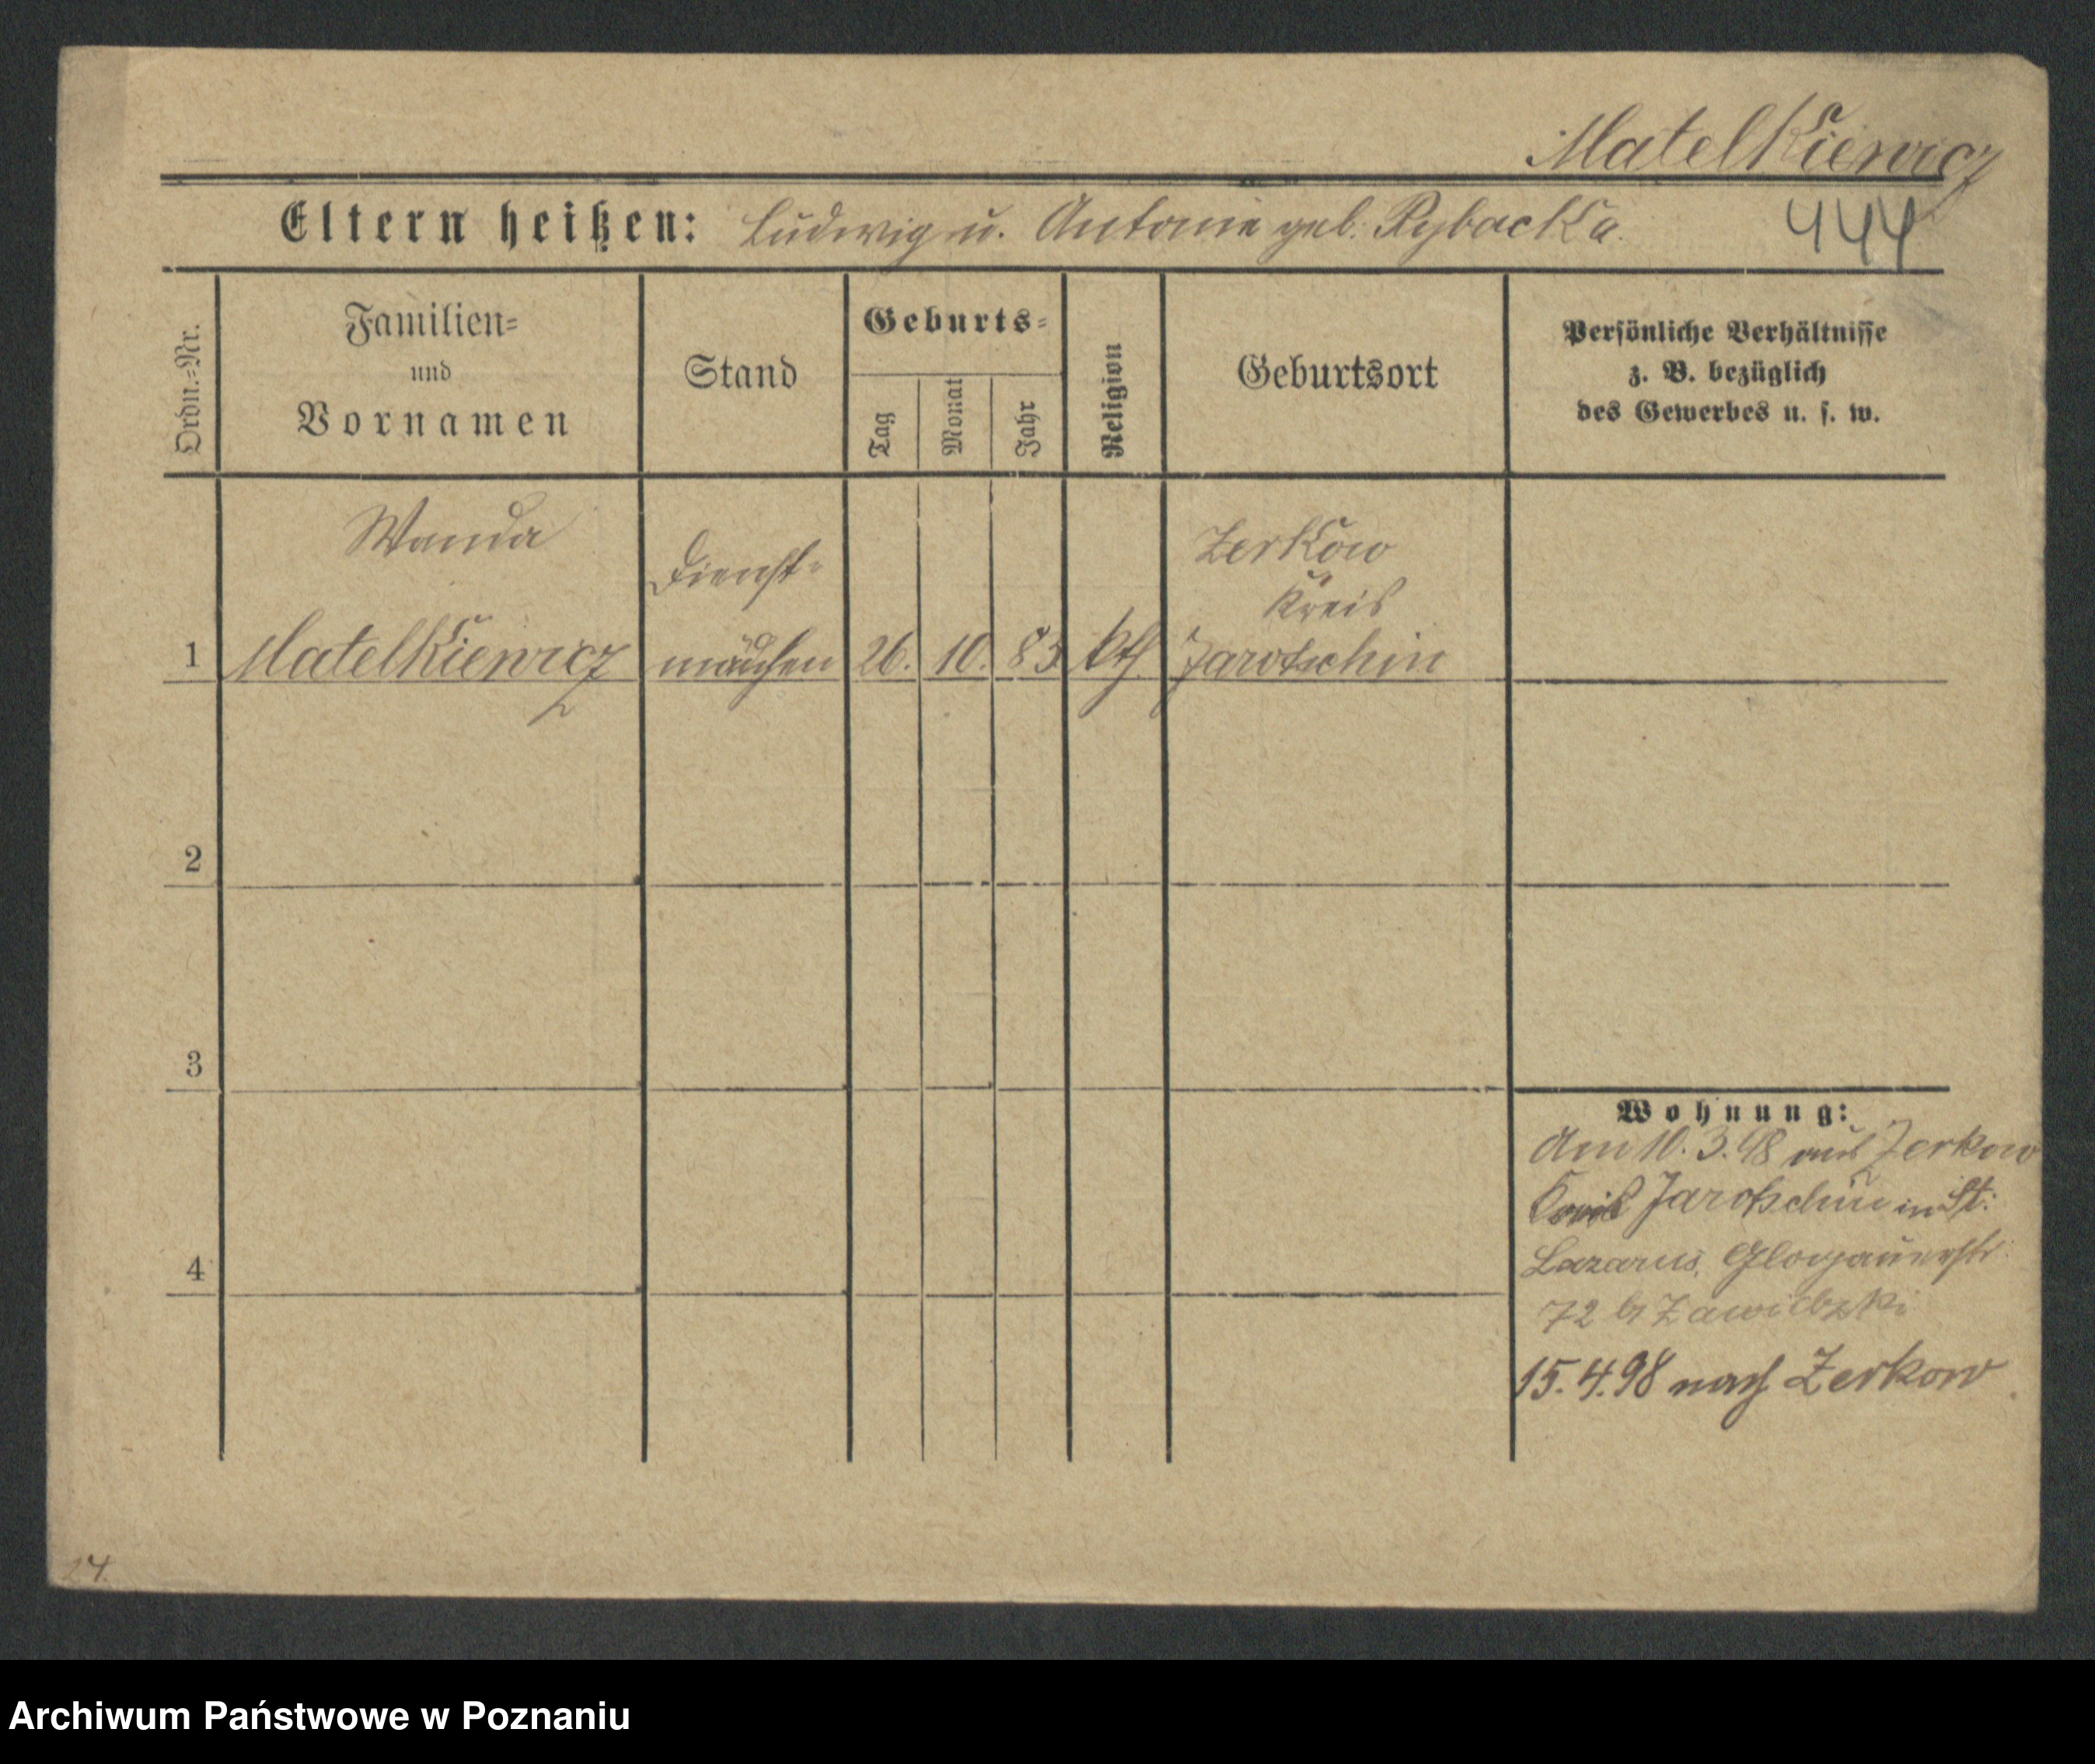 Matelkiewicz
Eltern heißen: Ludwig u. Antonie geb. Rybacka.
444
Ordn.-Nr.
Familien-
und
Vornamen
Stand
Geburts-
Tag
Monat
Jahr
Religion
Geburtsort
Persönliche Verhältnisse
z. B. bezüglich
des Gewerbes u. s. w.
Wanda
Dienst-
Zerkow
Kreis
1 Matelkiewicz mädchen 26. 10. 83 kth. Jarotschin
2
3
4
Wohnung:
Am 10. 3. 98 aus Zerkow
Kreis Jarotschin in St.
Lazarus, Glogauerstr.
72 b/
15. 4. 98 nach Zerkow
24.
Archiwum Państwowe w Poznaniu